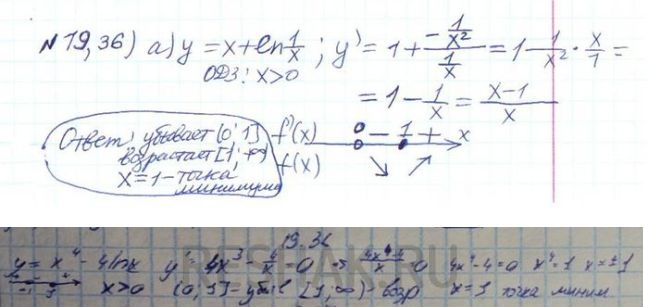 N19,36) а) y = x + ln 1/x ; y' = 1 + (-1/x²)/(1/x) = 1 - 1/x² · x/1 =
ОДЗ: x>0
= 1 - 1/x = (x-1)/x
Ответ: убывает (0; 1] f'(x) - 1 + x
возрастает [1; +∞) f(x)
x = 1 - точка
минимума
19.36
y = x⁴ - 4lnx y' = 4x³ - 4/x = 0 4x⁴-4/x = 0 4x⁴-4=0 x⁴=1 x=±1
-1 1 x>0 (0, 1] - убыв [1; ∞) - возр x=1 точка миним
RESHAK.RU